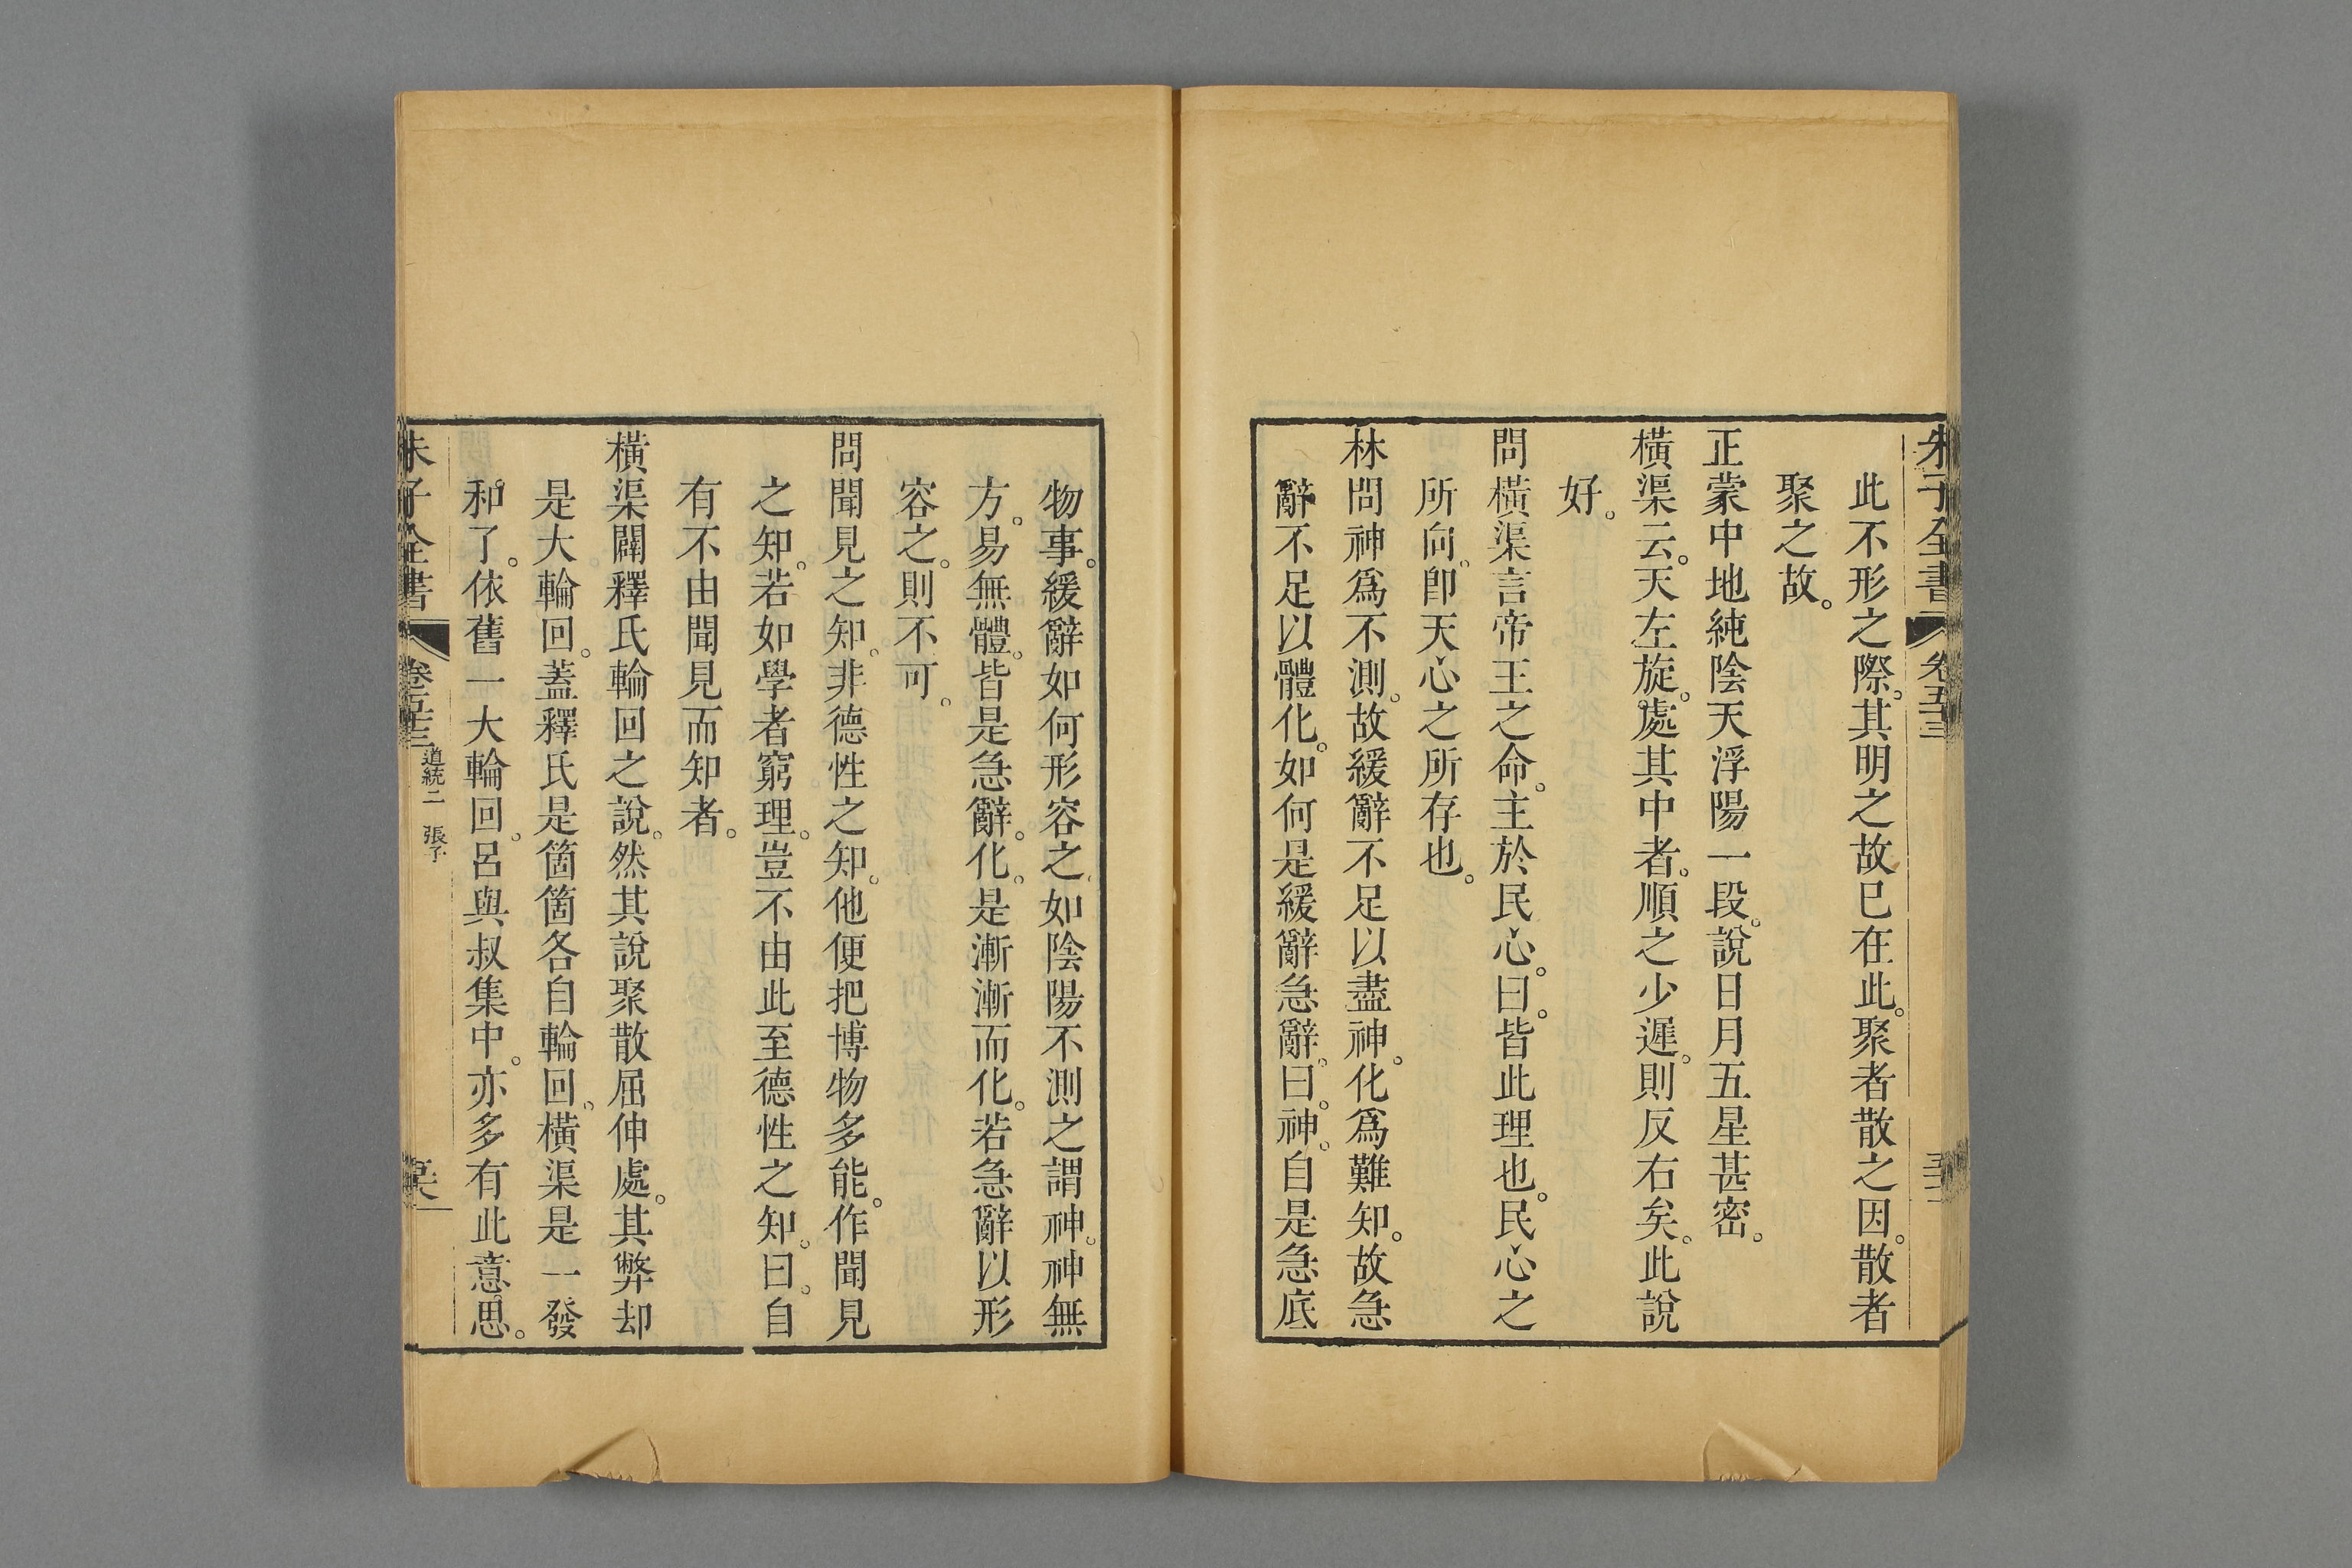 朱子全書 卷五十三
此不形之際。其明之故已在此。聚者散之因。散者
聚之故。
正蒙中地純陰天浮陽一段。說日月五星甚密。
橫渠云。天左旋。處其中者。順之少遲。則反右矣。此說
好。
問橫渠言帝王之命。主於民心。曰。皆此理也。民心之
所向。卽天心之所存也。
林問神爲不測。故緩辭不足以盡神。化爲難知。故急
辭不足以體化。如何是緩辭急辭。曰。神。自是急底
物事。緩辭如何形容之。如陰陽不測之謂神。神無
方。易無體。皆是急辭。化。是漸漸而化。若急辭以形
容之。則不可。
問聞見之知。非德性之知。他便把博物多能。作聞見
之知。若如學者窮理。豈不由此至德性之知。曰。自
有不由聞見而知者。
橫渠闢釋氏輪回之說。然其說聚散屈伸處。其弊却
是大輪回。蓋釋氏是箇箇各自輪回。橫渠是一發
和了。依舊一大輪回。呂與叔集中。亦多有此意思。
朱子全書 卷五十三 道統二 張子